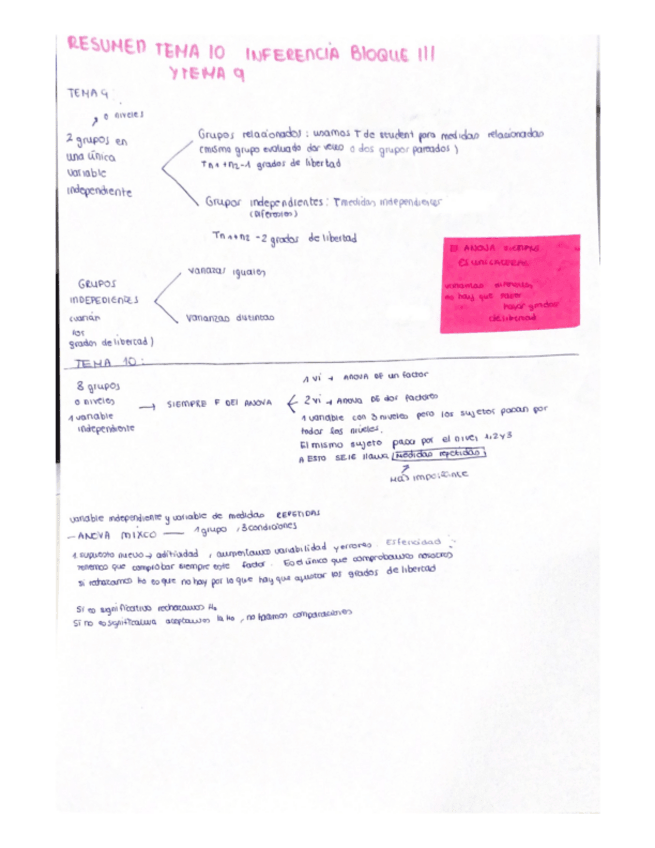 RESUMEN TEMA 10 INFERENCIA BLOQUE III
Y TEMA 9
TEMA 9:
o niveles
2 grupos en
una única
variable
independiente
Grupos relacionados: usamos T de student para medidas relacionadas
(mismo grupo evaluado dos veces o dos grupos pareados)
Tn1+n2-1 grados de libertad
Grupos independientes: T medidas independientes
(Diferentes)
Tn1+n2 -2 grados de libertad
El ANOVA siempre
es unilateral
no hay que
grados
de libertad
GRUPOS
INDEPEDIENTES
(varían
los
grados de libertad)
varianzas iguales
varianzas distintas
TEMA 10:
3 grupos
o niveles
1 variable
independiente
→ SIEMPRE F DEL ANOVA
1 vi → ANOVA de un factor
2 vi → ANOVA de dos factores
1 variable con 3 niveles pero los sujetos pasan por
todos los niveles.
El mismo sujeto pasa por el nivel 1, 2 y 3
A ESTO SE LE llama medidas repetidas
Más importante
variable independiente y variable de medidas REPETIDAS
- ANOVA MIXTO — 1 grupo, 3 condiciones
1 supuesto nuevo → aditividad, aumentamos variabilidad y errores Esfericidad:
tenemos que comprobar siempre este factor. Es el único que comprobamos nosotros
si rechazamos Ho es que no hay por lo que hay que ajustar los grados de libertad
Si es significativo rechazamos Ho
Si no es significativa aceptamos la Ho, no haremos comparaciones